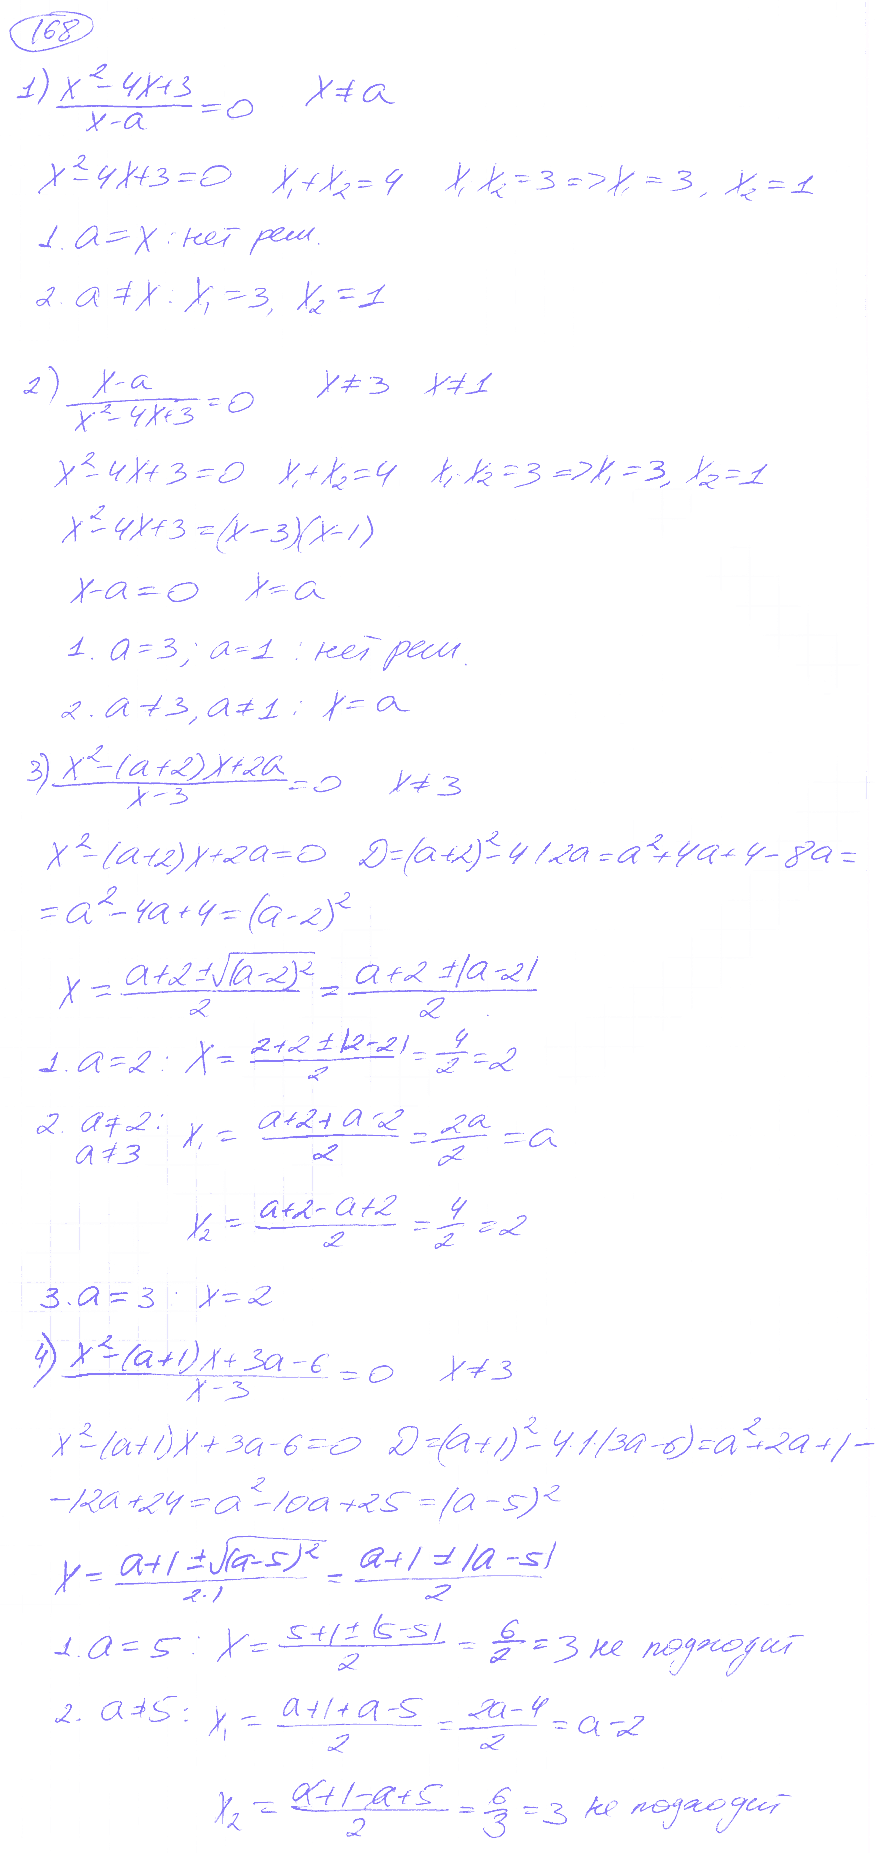 168
1) (x² - 4x + 3)/(x - a) = 0   x ≠ a
x² - 4x + 3 = 0   x₁ + x₂ = 4   x₁ x₂ = 3 => x₁ = 3, x₂ = 1
1. a = x : нет реш.
2. a ≠ x : x₁ = 3, x₂ = 1
2) (x - a)/(x² - 4x + 3) = 0   x ≠ 3   x ≠ 1
x² - 4x + 3 = 0   x₁ + x₂ = 4   x₁ · x₂ = 3 => x₁ = 3, x₂ = 1
x² - 4x + 3 = (x - 3)(x - 1)
x - a = 0   x = a
1. a = 3; a = 1 : нет реш.
2. a ≠ 3, a ≠ 1 : x = a
3) (x² - (a + 2)x + 2a)/(x - 3) = 0   x ≠ 3
x² - (a + 2)x + 2a = 0   D = (a + 2)² - 4·1·2a = a² + 4a + 4 - 8a =
= a² - 4a + 4 = (a - 2)²
x = (a + 2 ± √(a - 2)²)/2 = (a + 2 ± |a - 2|)/2
1. a = 2 : x = (2 + 2 ± |2 - 2|)/2 = 4/2 = 2
2. a ≠ 2 : x₁ = (a + 2 + a - 2)/2 = 2a/2 = a
a ≠ 3
x₂ = (a + 2 - a + 2)/2 = 4/2 = 2
3. a = 3 : x = 2
4) (x² - (a + 1)x + 3a - 6)/(x - 3) = 0   x ≠ 3
x² - (a + 1)x + 3a - 6 = 0   D = (a + 1)² - 4·1·(3a - 6) = a² + 2a + 1 -
- 12a + 24 = a² - 10a + 25 = (a - 5)²
x = (a + 1 ± √(a - 5)²)/2·1 = (a + 1 ± |a - 5|)/2
1. a = 5 : x = (5 + 1 ± |5 - 5|)/2 = 6/2 = 3 не подходит
2. a ≠ 5 : x₁ = (a + 1 + a - 5)/2 = (2a - 4)/2 = a - 2
x₂ = (a + 1 - a + 5)/2 = 6/3 = 3 не подходит